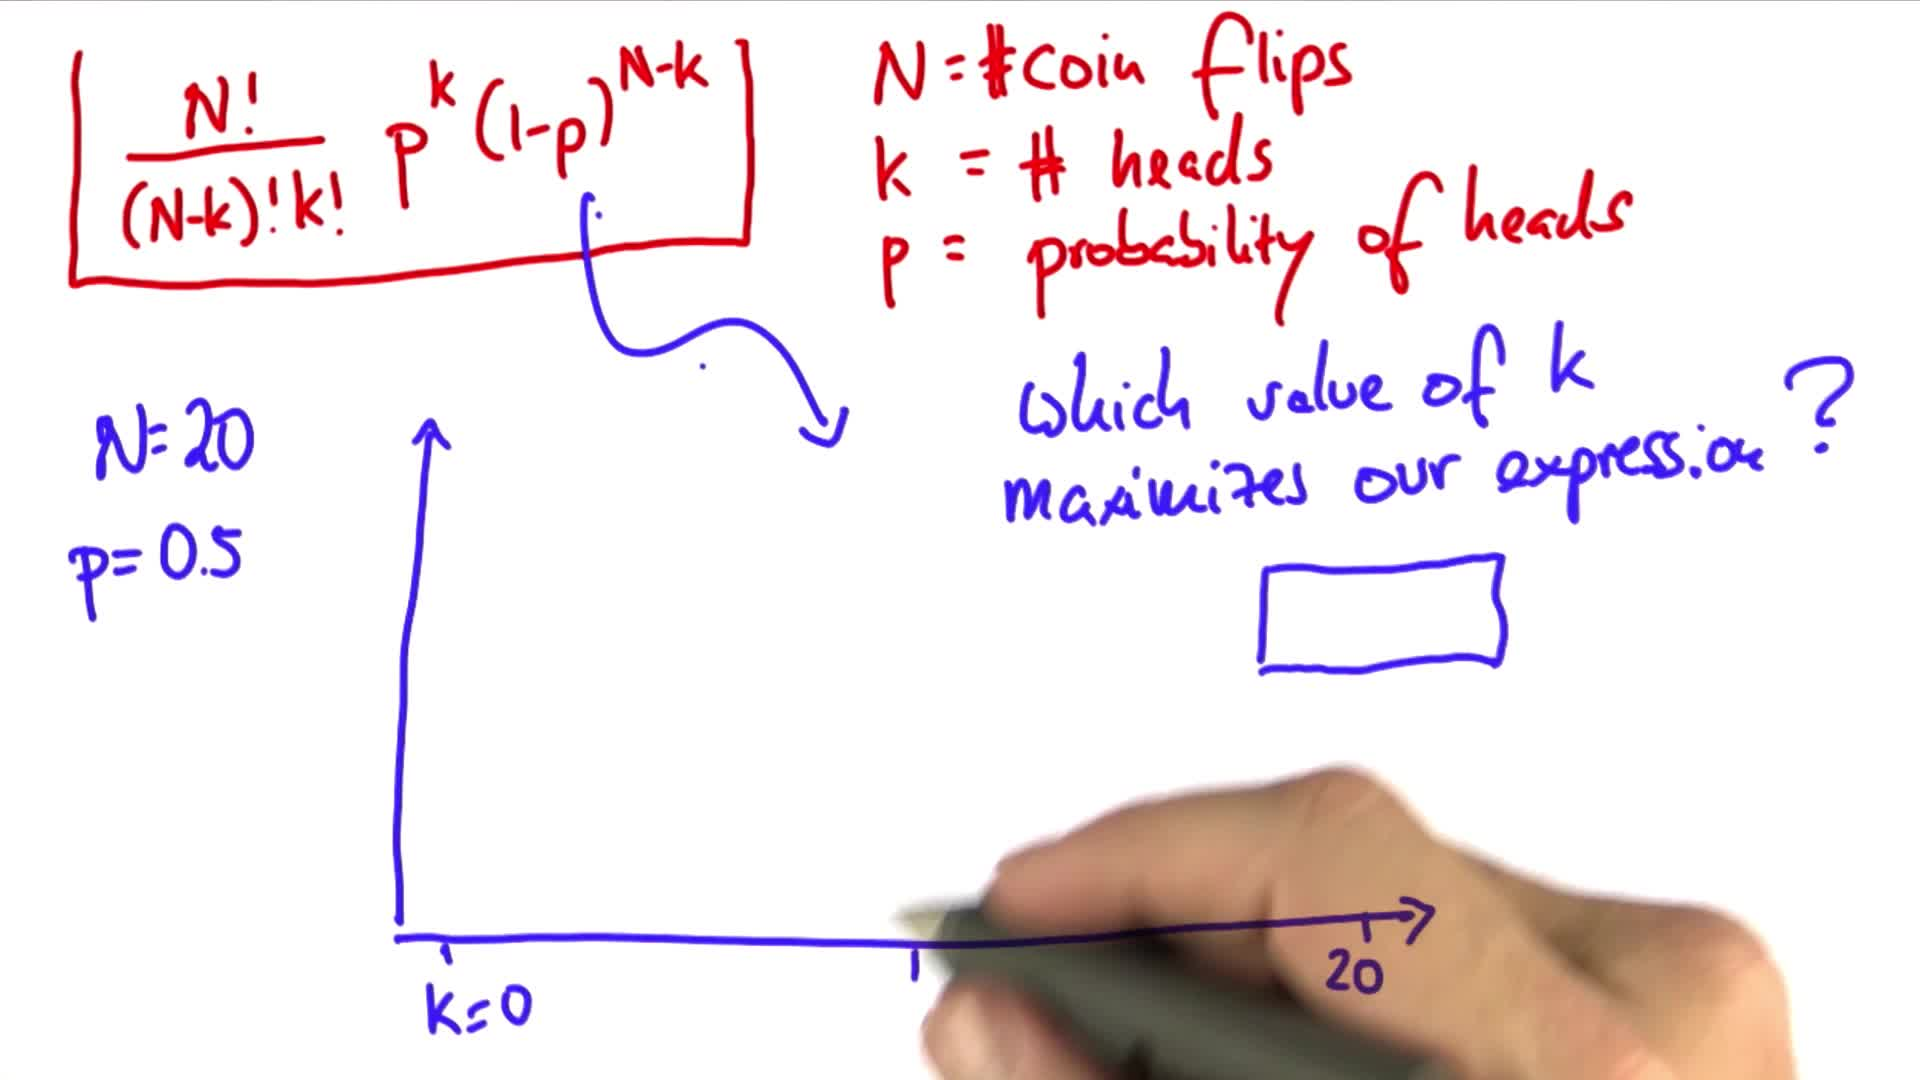 N! / (N-k)! k! p^k (1-p)^{N-k}
N = # coin flips
k = # heads
p = probability of heads
Which value of k
maximizes our expression ?
N = 20
p = 0.5
k = 0
20